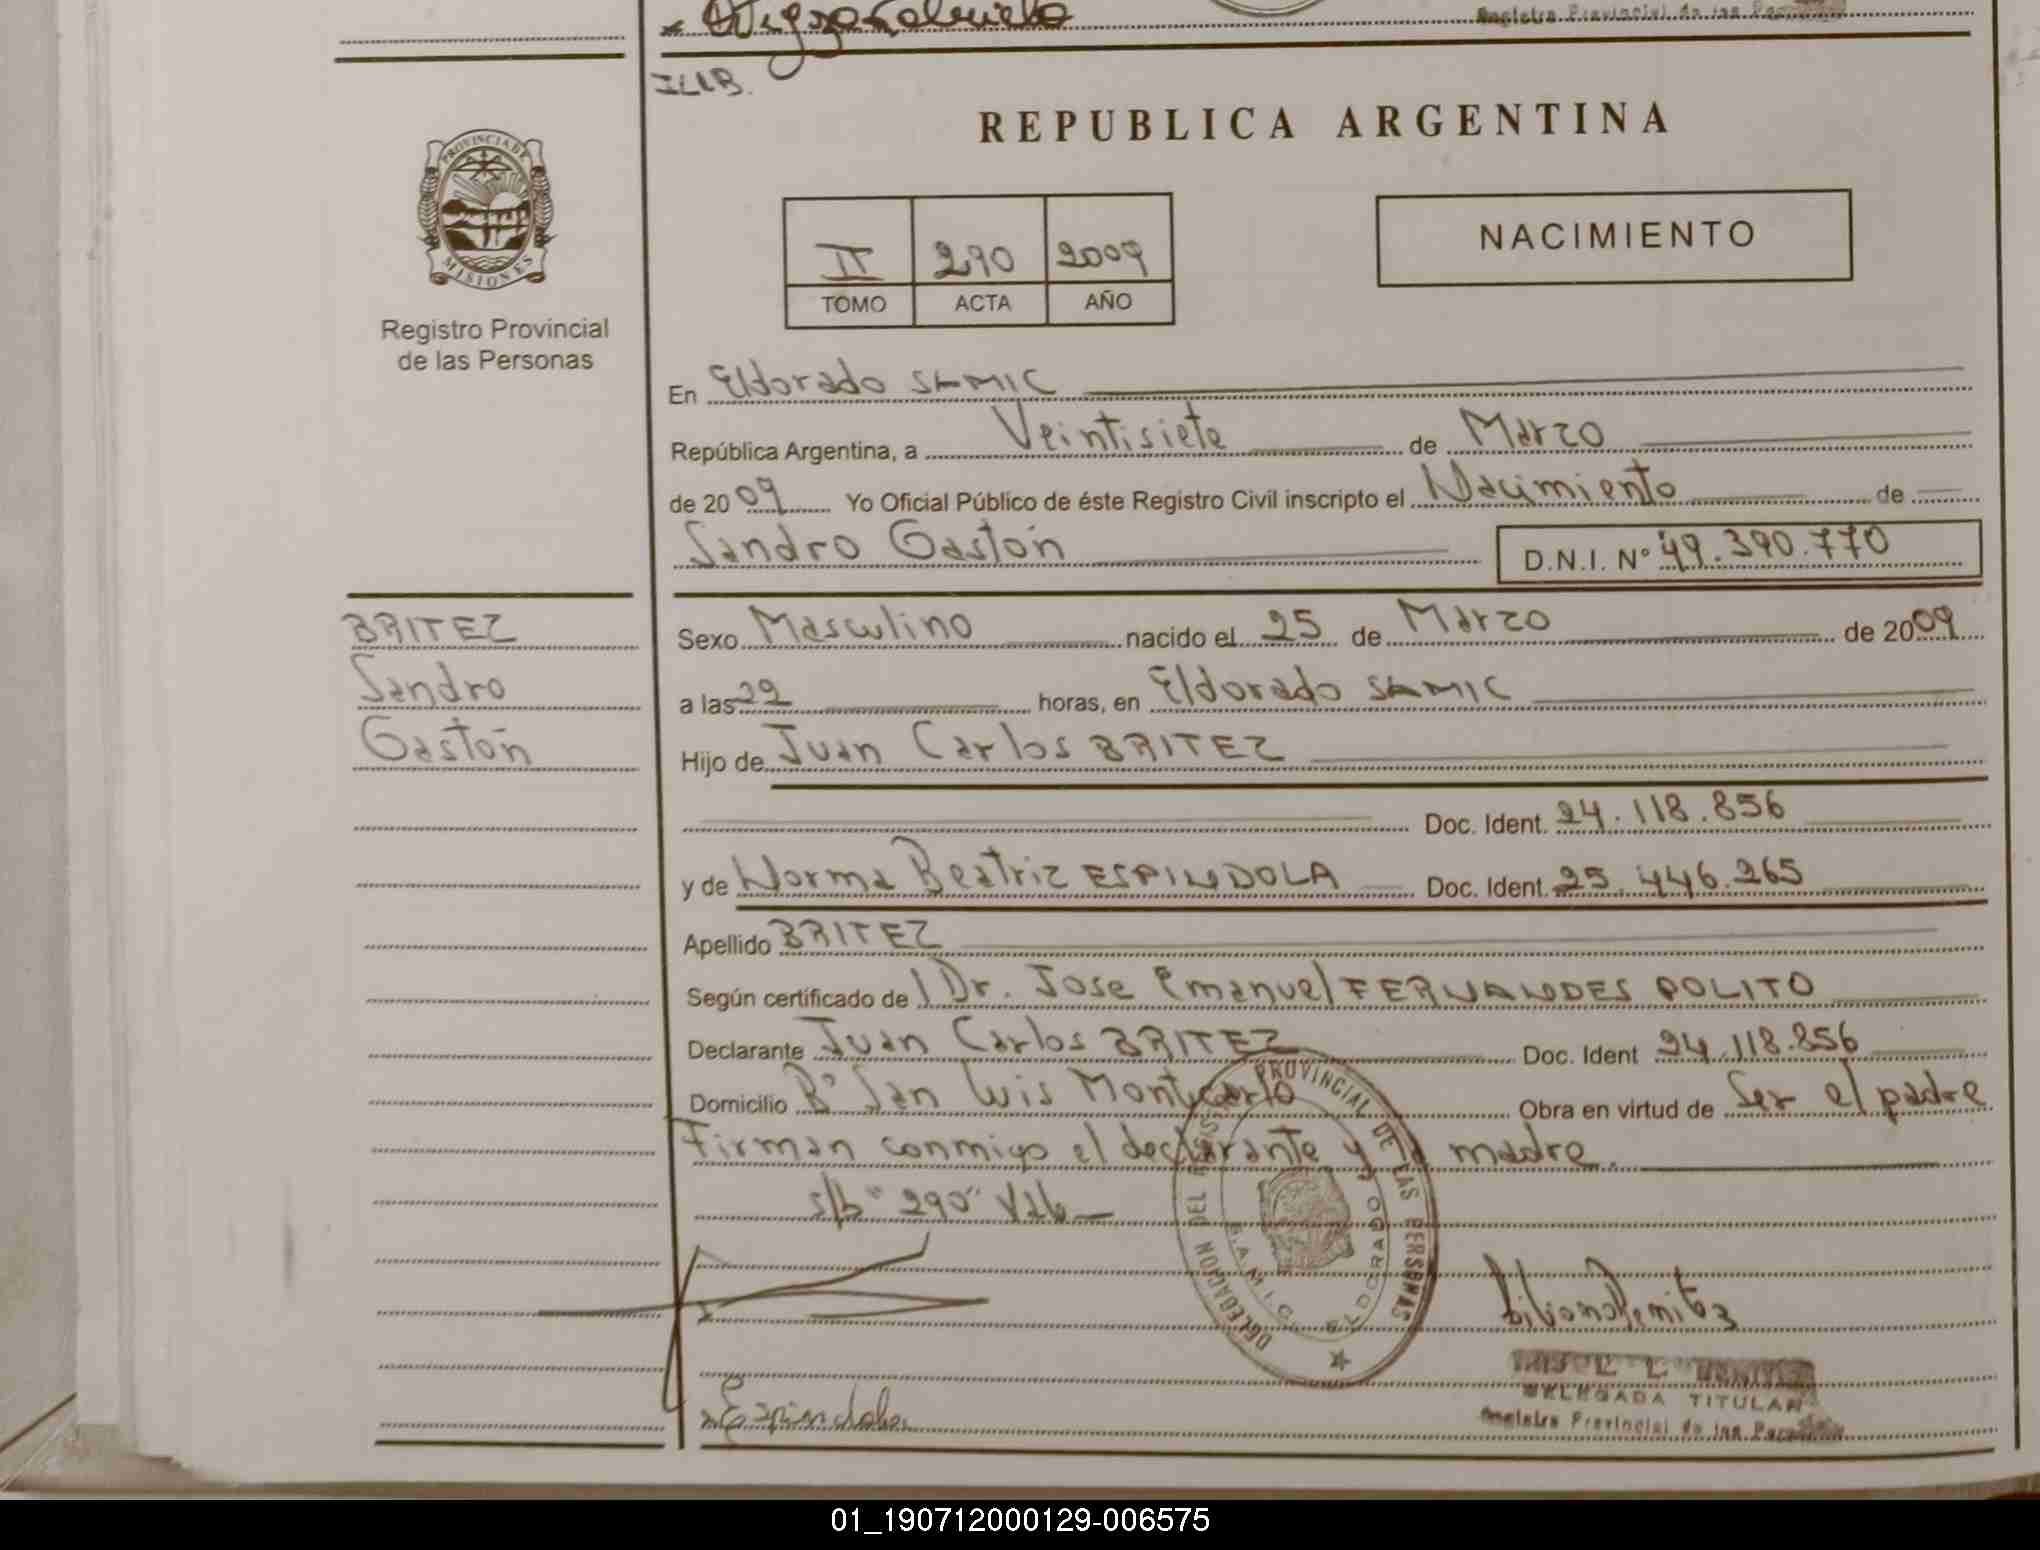 Registro Provincial de las Per
ILLB.
REPUBLICA ARGENTINA
PROVINCIA DE
MISIONES
Registro Provincial
de las Personas
II 290 2009
TOMO ACTA AÑO
NACIMIENTO
En Eldorado SAMIC
República Argentina, a Veintisiete de Marzo
de 2009 Yo Oficial Público de éste Registro Civil inscripto el Nacimiento de
Sandro Gastón D.N.I. Nº 49.390.770
BRITEZ
Sandro
Gastón
Sexo Masculino nacido el 25 de Marzo de 2009
a las 22 horas, en Eldorado SAMIC
Hijo de Juan Carlos BRITEZ
Doc. Ident. 24.118.856
y de Norma Beatriz ESPINDOLA Doc. Ident. 25.446.265
Apellido BRITEZ
Según certificado de Dr. Jose Emanuel FERNANDES POLITO
Declarante Juan Carlos BRITEZ Doc. Ident 24.118.856
Domicilio Bº San Luis Montecarlo Obra en virtud de Ser el padre
Firman conmigo el declarante y la madre.
s/b "290" Vale
DELEGACION DEL REGISTRO PROVINCIAL DE LAS PERSONAS
S.A.M.I.C. ELDORADO
DELEGADA TITULAR
Registro Provincial de las Per
Espindola
01_190712000129-006575